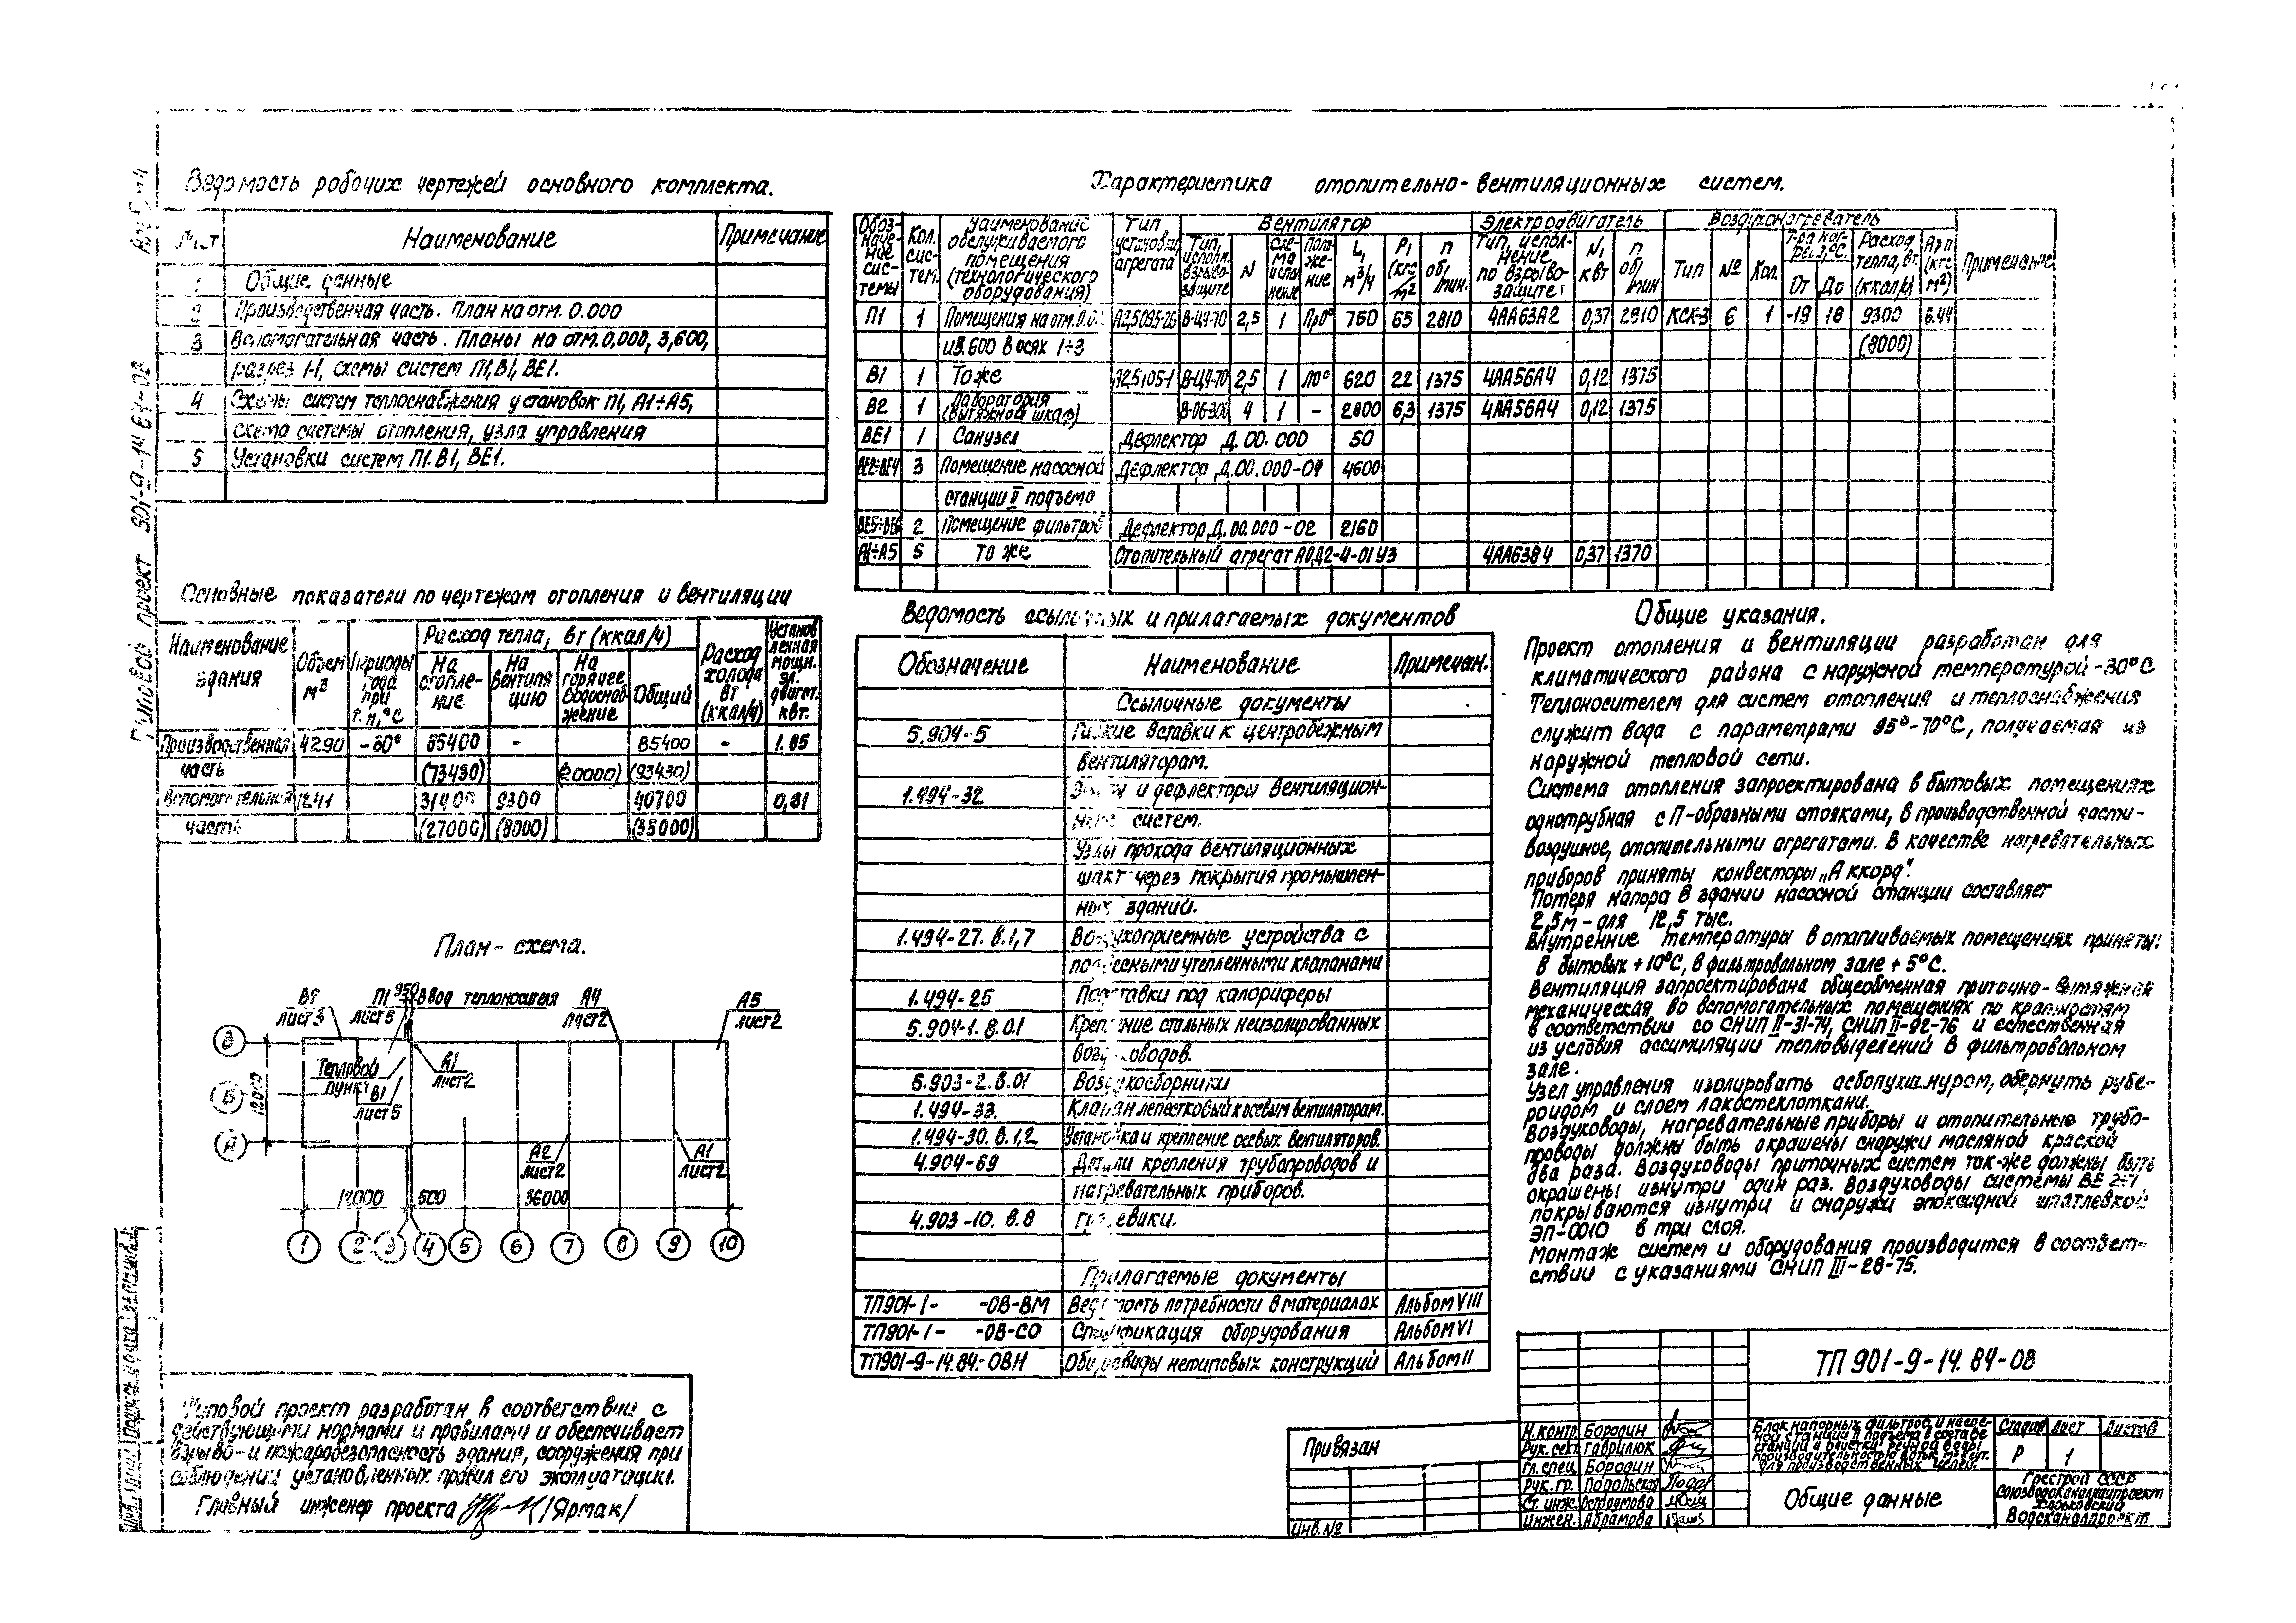 Типовой проект 901-9-14.84-ОВ
Ведомость рабочих чертежей основного комплекта.
Лист Наименование Примечание
1 Общие данные
2 Производственная часть. План на отм. 0.000
3 Вспомогательная часть. Планы на отм. 0,000, 3,600,
разрез 1-1, схемы систем П1, В1, ВЕ1.
4 Схемы систем теплоснабжения установок П1, А1÷А5,
схема системы отопления, узла управления
5 Установки систем П1. В1, ВЕ1.
Основные показатели по чертежам отопления и вентиляции
Наименование здания Объем м³ Периоды года при t.н,°С Расход тепла, Вт (ккал/ч) Расход холода Вт (ккал/ч) Установленная мощн. эл. двигат. кВт.
На отопление На вентиляцию На горячее водоснабжение Общий
Производственная 4290 85400 - 85400 - 1.85
часть (73430) (20000) (93430)
Вспомогательная 1241 31400 9300 40700 0,81
часть (27000) (8000) (35000)
План-схема.
В2 лист 3
П1 лист 5
950
Ввод теплоносителя
А4 лист 2
А5 лист 2
Тепловой пункт
В1 лист 5
А1 лист 2
А2 лист 2
А1 лист 2
Б
А
12000
12000 500 36000
1 2 3 4 5 6 7 8 9 10
Типовой проект разработан в соответствии с
действующими нормами и правилами и обеспечивает
взрыво- и пожаробезопасность здания, сооружения при
соблюдении установленных правил его эксплуатации.
Главный инженер проекта /Ярмак/
Характеристика отопительно-вентиляционных систем.
Обозначение системы Кол. систем. Наименование обслуживаемого помещения (технологического оборудования) Тип установки агрегата Вентилятор Электродвигатель Воздухонагреватель Примечание
Тип, исполн. взрывозащите N Схема исполнение Положение L, м³/ч Р, (кгс/м²) n об/мин. Тип, исполнение по взрывозащите N, кВт n об/мин Тип № Кол. Т-ра нагрева,°С. От До Расход тепла, Вт. (ккал/ч) ΔРп (кгс/м²)
П1 1 Помещения на отм. А2,5095-2б В-Ц4-70 2,5 1 Пр0° 760 65 2810 4АА63А2 0,37 2810 КСК-3 6 1 -19 18 9300 6.44
и 3.600 в осях 1÷3 (8000)
В1 1 То же А2.5105-1 В-Ц4-70 2,5 1 Л0° 620 22 1375 4АА56А4 0,12 1375
В2 1 Лаборатория (вытяжной шкаф) В-06-300 4 1 - 2000 6,3 1375 4АА56А4 0,12 1375
ВЕ1 1 Санузел Дефлектор Д.00.000 50
ВЕ2÷ВЕ4 3 Помещение насосной Дефлектор Д.00.000-04 4600
станции II подъема
ВЕ5÷ВЕ6 2 Помещение фильтров Дефлектор Д.00.000-02 2160
А1÷А5 5 То же Отопительный агрегат АОД2-4-01У3 4АА63В4 0,37 1370
Ведомость ссылочных и прилагаемых документов
Обозначение Наименование Примечан.
Ссылочные документы
5.904-5 Гибкие вставки к центробежным
вентиляторам.
1.494-32 Зонты и дефлекторы вентиляцион-
ных систем.
Узлы прохода вентиляционных
шахт через покрытия промышлен-
ных зданий.
1.494-27. в.1,7 Воздухоприемные устройства с
подвесными утепленными клапанами
1.494-25 Подставки под калориферы
5.904-1. в.0.1 Крепление стальных неизолированных
воздуховодов.
5.903-2.в.01 Воздухосборники
1.494-33. Клапан лепестковый к осевым вентиляторам.
1.494-30. в.1,2 Установка и крепление осевых вентиляторов.
4.904-69 Детали крепления трубопроводов и
нагревательных приборов.
4.903-10. в.8 грязевики.
Прилагаемые документы
ТП901-1- -ОВ-ВМ Ведомость потребности в материалах Альбом VIII
ТП901-1- -ОВ-СО Спецификация оборудования Альбом VI
ТП901-9-14.84-ОВН Общие виды нетиповых конструкций Альбом II
Общие указания.
Проект отопления и вентиляции разработан для
климатического района с наружной температурой -30°С
Теплоносителем для систем отопления и теплоснабжения
служит вода с параметрами 95°-70°С, получаемая из
наружной тепловой сети.
Система отопления запроектирована в бытовых помещениях
однотрубная с П-образными стояками, в производственной части-
воздушное, отопительными агрегатами. В качестве нагревательных
приборов приняты конвекторы „Аккорд".
Потеря напора в здании насосной станции составляет
2,5м - для 12,5 тыс.
Внутренние температуры в отапливаемых помещениях приняты:
в бытовых +10°С, в фильтровальном зале +5°С.
Вентиляция запроектирована общеобменная приточно-вытяжная
механическая во вспомогательных помещениях по кратностям
в соответствии со СНиП II-31-74, СНиП II-92-76 и естественная
из условия ассимиляции тепловыделений в фильтровальном
зале.
Узел управления изолировать асбопухшнуром, обернуть рубе-
роидом и слоем лакостеклоткани.
Воздуховоды, нагревательные приборы и отопительные трубо-
проводы должны быть окрашены снаружи масляной краской
два раза. Воздуховоды приточных систем так-же должны быть
окрашены изнутри один раз. Воздуховоды системы ВЕ
покрываются изнутри и снаружи эпоксидной шпатлевкой
ЭП-0010 в три слоя.
Монтаж систем и оборудования производится в соответ-
ствии с указаниями СНиП III-28-75.
Привязан
Инв.№
ТП 901-9-14.84-ОВ
Н.контр Бородин
Рук. сект Гаврилюк
Гл. спец Бородин
Рук. гр. Подольская
Ст. инж. Остроумова
Инжен. Абрамова
Блок напорных фильтров и насос-
ной станции II подъема в составе
станции очистки речной воды
для производственных целей.
Стадия Лист Листов
Р 1
Общие данные
Госстрой СССР
Союзводоканалпроект
Харьковский
Водоканалпроект